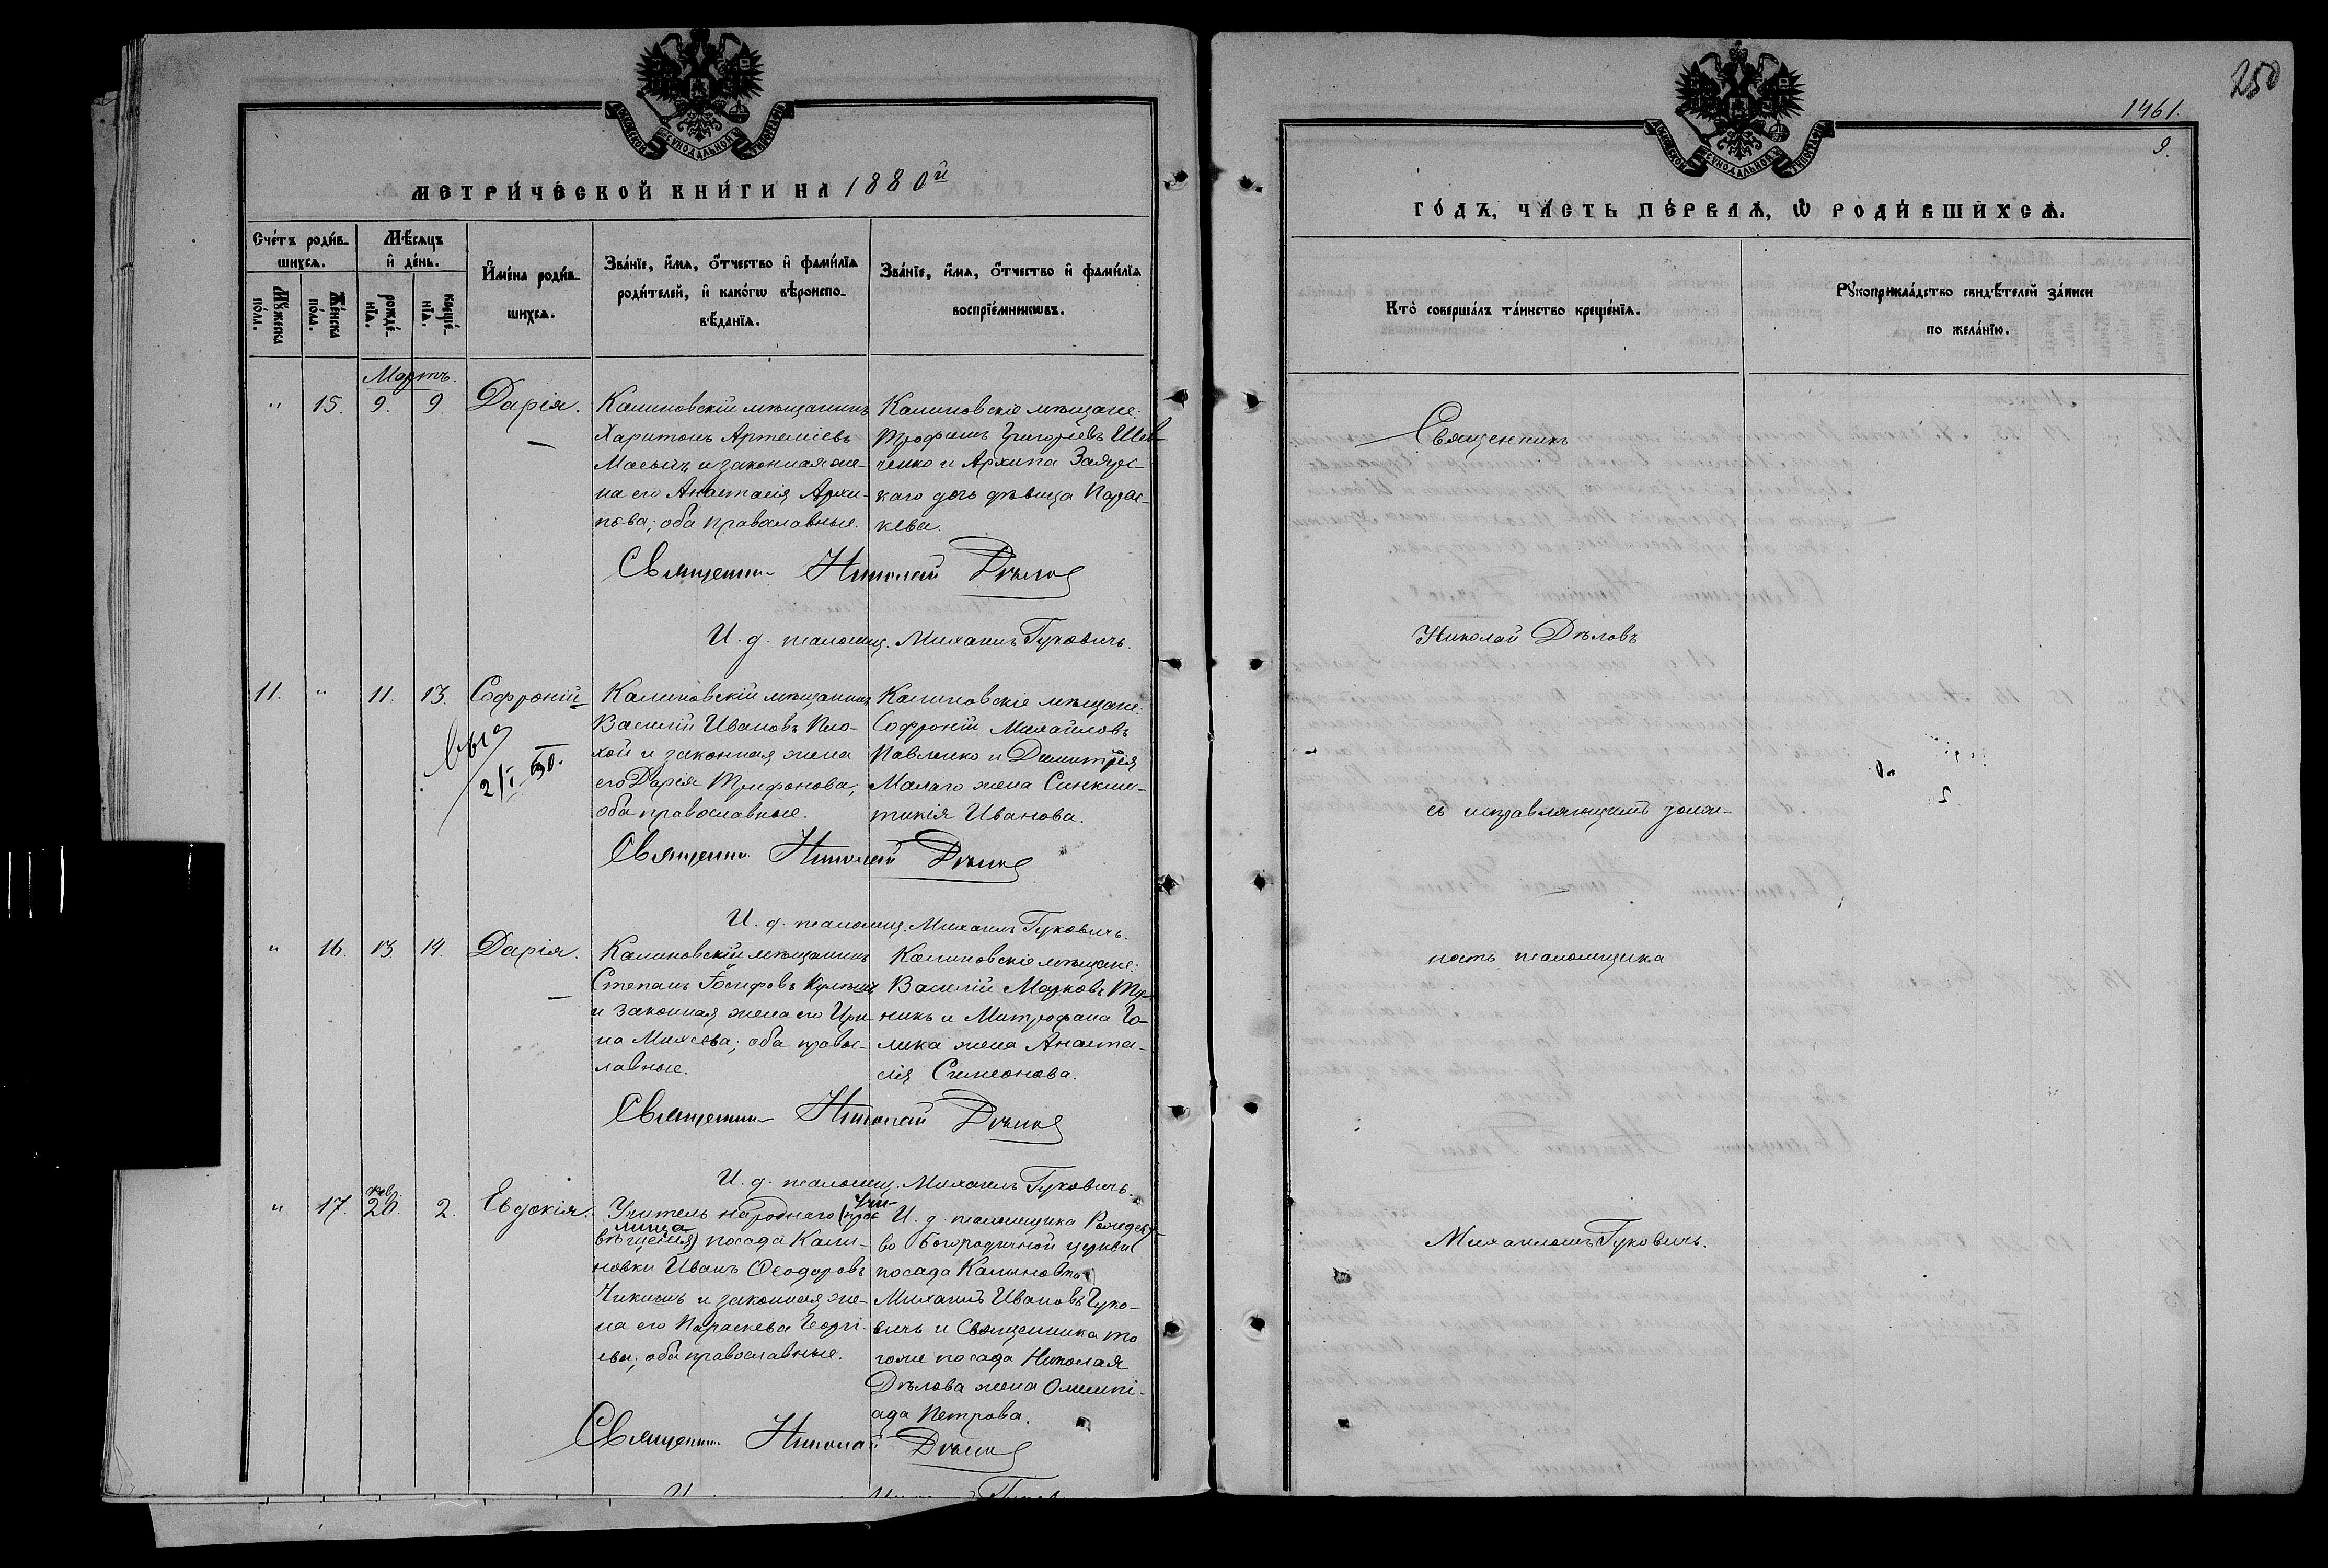 МОСКОВСКОЙ СѴНОДАЛЬНОЙ ТИПОГРАФІИ
МЕТРИ́ЧЕСКОЙ КНИ́ГИ НА 1880й
Сче́тъ роди́в-
шихсѧ.
Мꙋ́жеска
пола.
Же́нска
по́ла.
Мѣ́сѧцъ
и҆ де́нь.
рожде́-
нїѧ.
креще́-
нїѧ.
И҆мена̀ роди́в-
шихсѧ.
Зва́нїе, и҆́мѧ, ѻ҆́тчество и҆ фами́лїѧ
роди́телей, и҆ како́гѡ вѣроиспо-
вѣ́данїѧ.
Зва́нїе, и҆́мѧ, ѻ҆́тчество и҆ фами́лїѧ
воспрїе́мникѡвъ.
Мартъ.
" 15. 9. 9 Дарія.
Калиновскій мѣщанинъ
Харитонъ Артеміевъ
и законная же-
на его Анастасія Архи-
пова; оба православные.
Калиновскіе мѣщане:
Трофимъ Григоріевъ Шев-
ченко и Архипа
каго дочь дѣвица Парас-
кева.
Священникъ Николай Дѣловъ
И. д. псаломщ. Михаилъ Гуковичъ.
11. " 11. 13. Софроній
2/I 30.
Калиновскій мѣщанинъ
Василій Ивановъ Пло-
хой и законная жена
его Дарія Трифонова;
оба православные.
Калиновскіе мѣщане:
Софроній Михайловъ
Павленко и Димитрія
Малаго жена Синкли-
тикія Иванова.
Священникъ Николай Дѣловъ
И. д. псаломщ. Михаилъ Гуковичъ.
" 16. 13. 14. Дарія.
Калиновскій мѣщанинъ
Степанъ Іосифовъ
и законная жена его Ири-
на Михеева; оба правос-
лавные.
Калиновскіе мѣщане:
Василій Марковъ
никъ и Митрофана Го-
лика жена Анаста-
сія Симеонова.
Священникъ Николай Дѣловъ
И. д. псаломщ. Михаилъ Гуковичъ.
" 17. фев. 26. 2. Евдокія.
Учитель народнаго (прос учи-
лища
вѣщенія) посада Кали-
новки Иванъ Ѳеодоровъ
и законная же-
на его Параскева Георгі-
ева; оба православные.
И. д. псаломщика Рождест-
во Богородичной церкви
посада Калиновки
Михаилъ Ивановъ Гуко-
вичъ и Священника то
гоже посада Николая
Дѣлова жена Олимпі-
ада Петрова.
Священникъ Николай Дѣловъ
250
1461.
9.
МОСКОВСКОЙ СѴНОДАЛЬНОЙ ТИПОГРАФІИ
ГО́ДЪ, ЧА́СТЬ ПЕ́РВАѦ, Ѽ РОДИ́ВШИХСѦ.
Кто̀ соверша́лъ та́инство креще́нїѧ.
Рꙋкоприкла́дство свидѣ́телей за́писи
по жела́нїю.
Священникъ
Николай Дѣловъ
съ исправляющимъ долж-
ность псаломщика
Михаиломъ Гуковичъ.